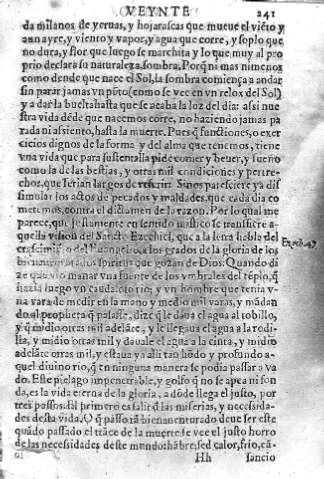 VEYNTE
241
da milanos de yeruas, y hojarascas que mueue el viẽto y
aun ayre, y viento y vapor, y agua que corre, y soplo que
no dura, flor que luego se marchita y lo que muy al pro
prio declara su naturaleza, sombra. Porq̃ ni mas ni menos
como dende que nace el Sol, la sombra comiença a andar
sin parar jamas vn pũto (como se vee en vn relox del Sol)
y a dar la buelta hasta que se acaba la luz del dia: assi nue
stra vida dẽde que nacemos corre, no haziendo jamas pa
rada ni assiento, hasta la muerte. Pues q̃ functiones, o exer
cicios dignos de la forma y del alma que tenemos, tiene
vna vida que para sustentalla pide comer y beuer, y sueño
como la de las bestias, y otras mil condiciones y pertre-
chos, que serian largos de referir. Si nos pareciere ya dis
simular los actos de pecados y maldades, que cada dia co
metemos, contra el dictamen de la razon. Por lo qual me
parece, que justamente en sentido mistico se transfiere a-
quella visiõ del Sancto Ezechiel, que a la letra habla del
Ezech. 47
del Euangelio, a los grados de la gloria de los
bienauenturados spiritus que gozan de Dios. Quando di
ze que vio manar vna fuente de los vmbrales del tẽplo, q̃
hazia luego vn caudaloso rio; y vn hombre que tenia v-
na vara de medir en la mano y medio mil varas, y mãdan
do al propheta q̃ passasse, dize q̃ le daua el agua al tobillo,
y q̃ midio otras mil adelãte, y le llegaua el agua a la rodi-
lla, y midio otras mil y dauale el agua a la cinta, y midio
adelãte otras mil, y estaua ya alli tan hõdo y profundo a-
quel diuino rio, q̃ en ninguna manera se podia passar a va
do. Este pielago impenetrable, y golfo q̃ no se apea ni son
da, es la vida eterna de la gloria, a dõde llega el justo, por
tres passos. El primero es salir d̃ las miserias, y necessida-
des desta vida. O q̃ passo tã bienauenturado deue ser este
quãdo passado el trãce de la muerte se vee el justo horro
de las necessidades deste mundo: hãbre, sed calor, frio, cã-
Hh
sancio